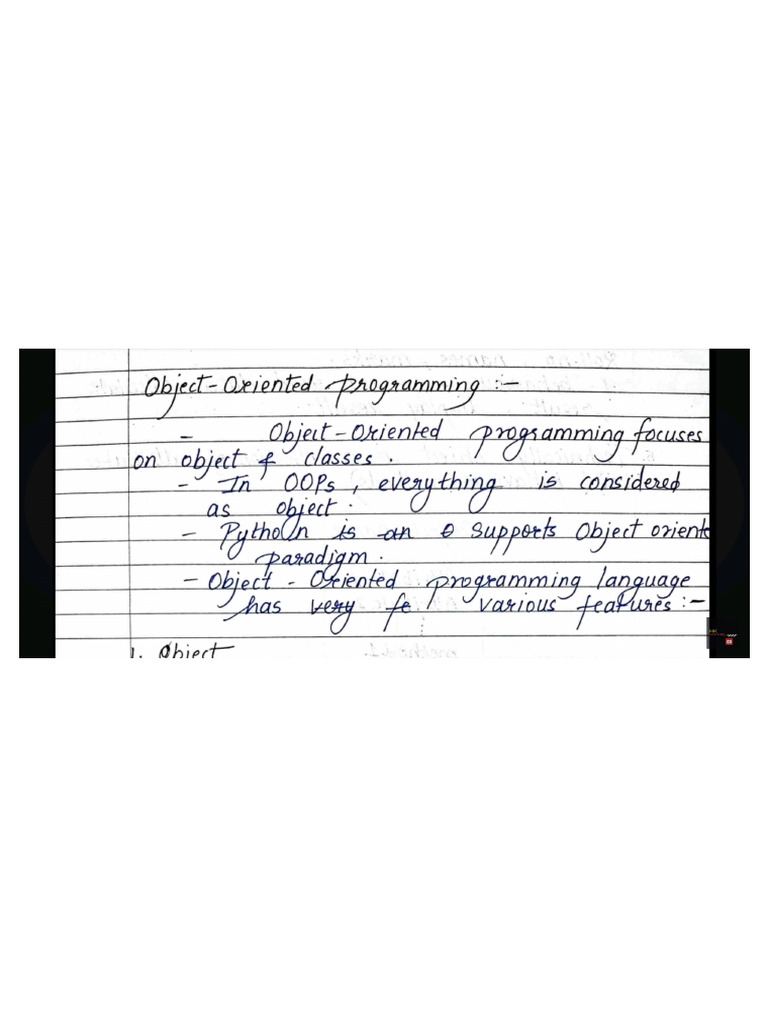 Object-Oriented programming :-
- Object-Oriented programming focuses
on object & classes.
- In OOPs, everything is considered
as object.
- Python is an o supports Object oriente
paradigm.
- Object - Oriented programming language
has very fe various features :-
1. Object